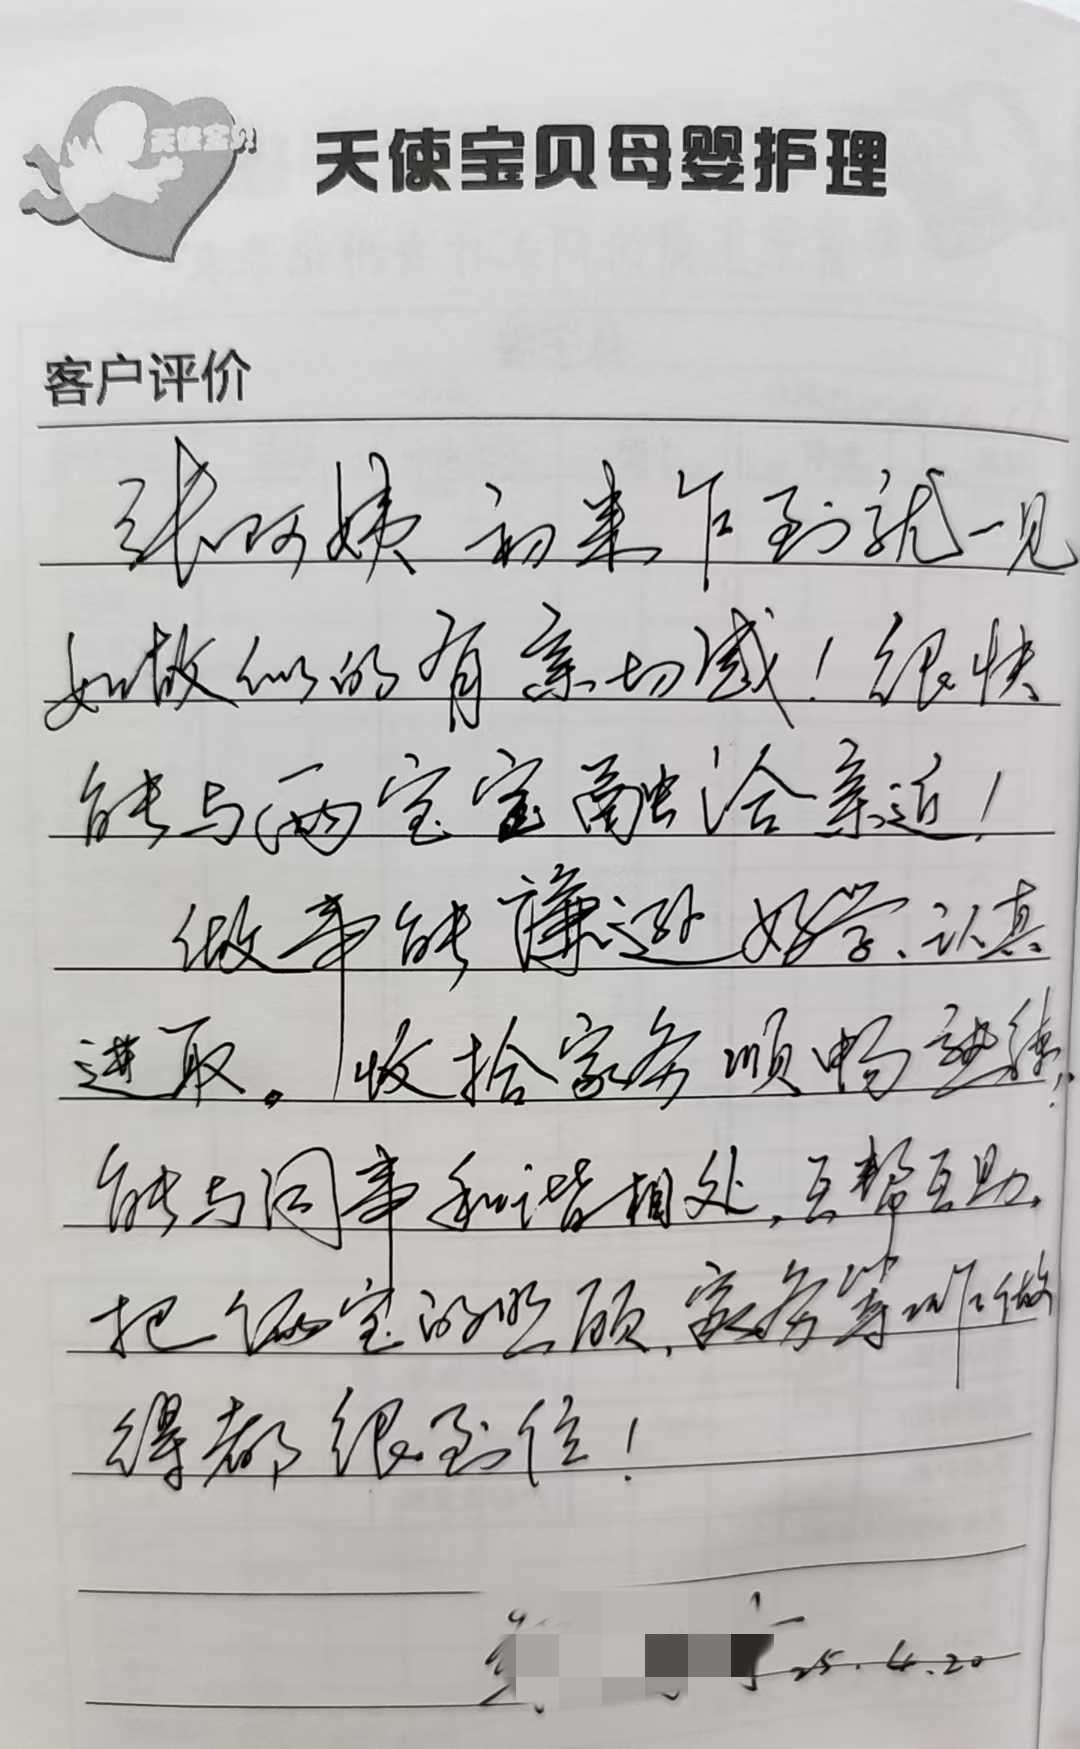 天使宝贝
天使宝贝母婴护理
客户评价
张阿姨初来乍到就一见
如故似的有亲切感！很快
能与两宝宝融洽亲近！
做事能谦逊好学、认真
进取。收拾家务顺畅熟练！
能与同事和谐相处，互帮互助，
把俩宝的照顾，家务等工作做
得都很到位！
25.4.20